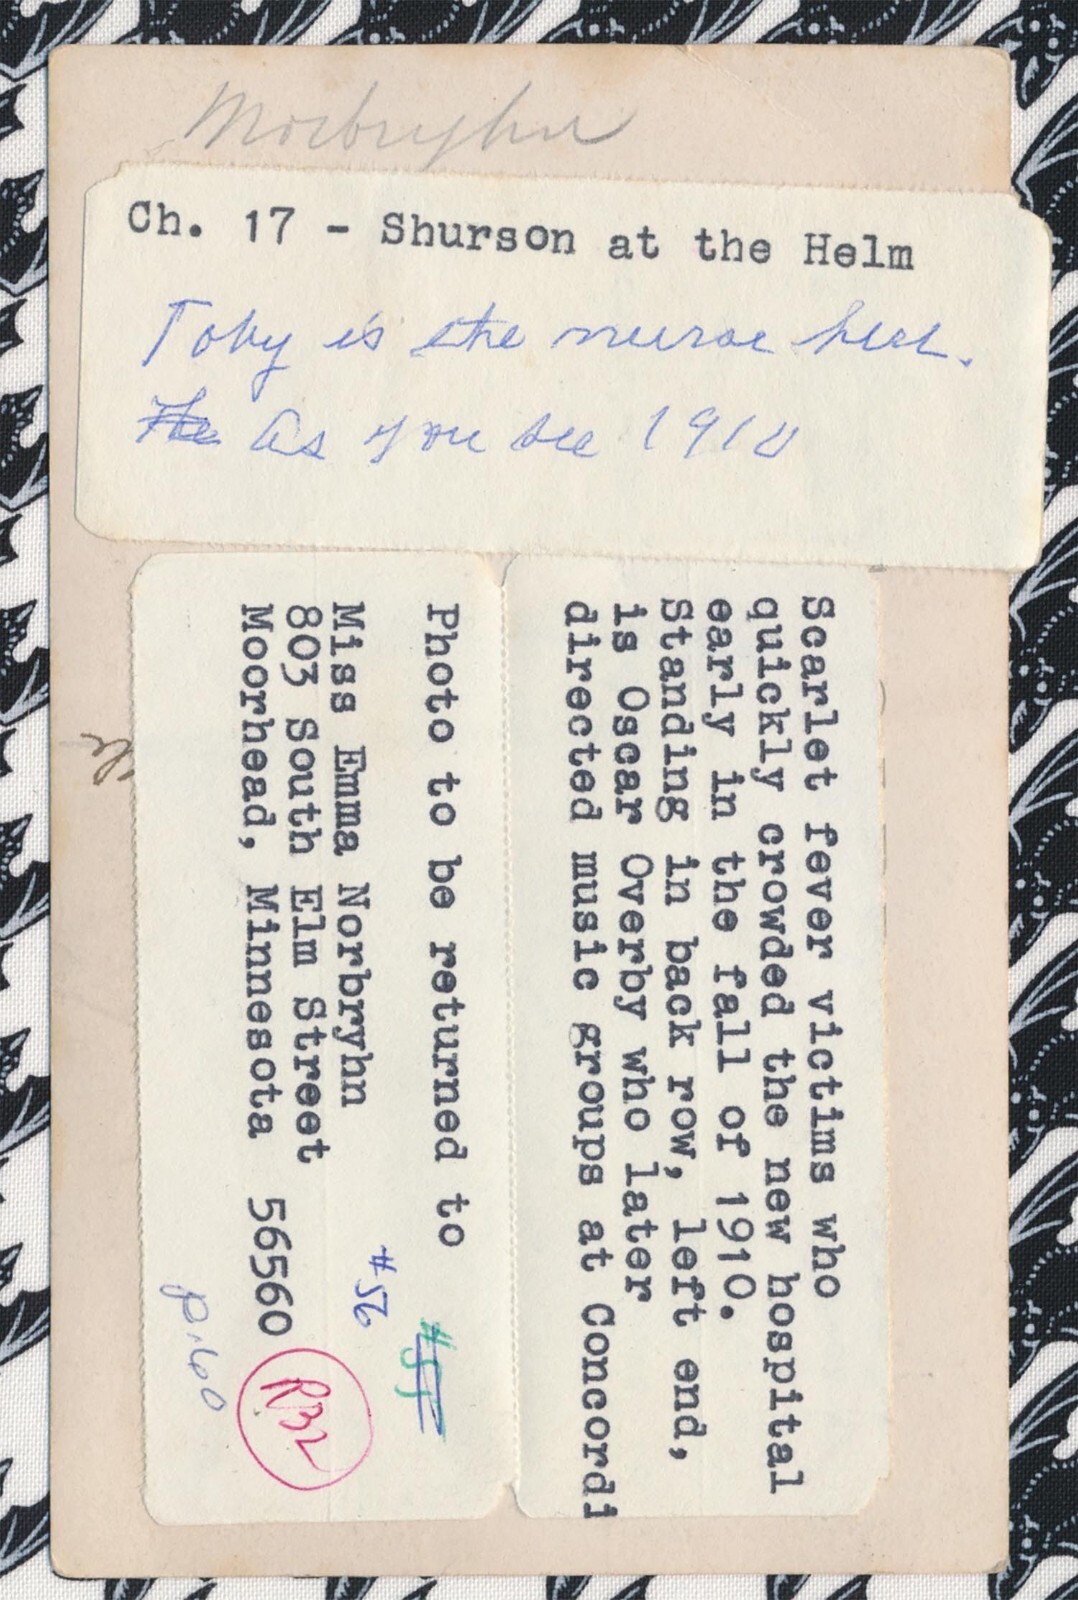 Ch. 17 - Shurson at the Helm
Toby is the nurse here.
The As you see 1910
Scarlet fever victims who
quickly crowded the new hospital
early in the fall of 1910.
Standing in back row, left end,
is Oscar Overby who later
directed music groups at Concordi
Photo to be returned to
Miss Emma Norbryhn
803 South Elm Street
Moorhead, Minnesota 56560
#56
p.60